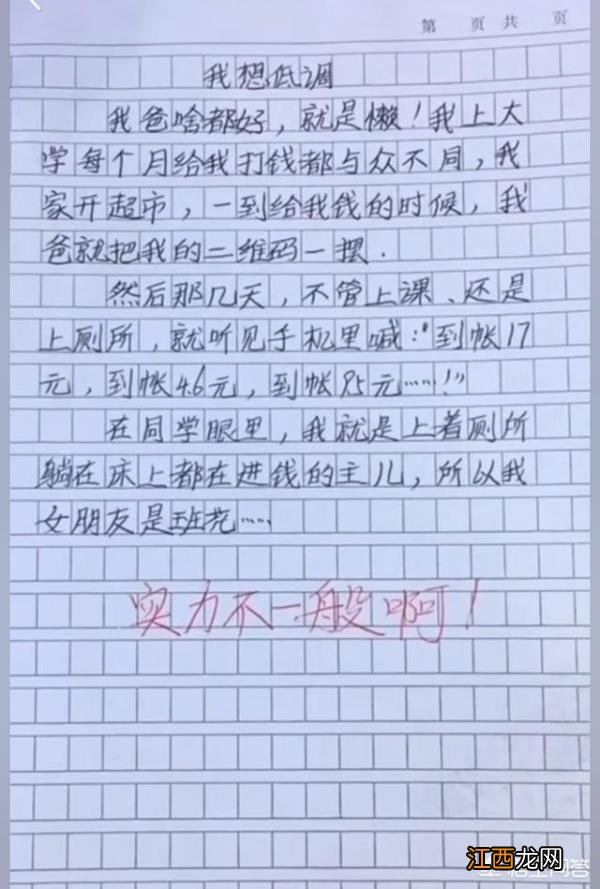 第 页 共 页
我想低调
我爸啥都好，就是懒！我上大
学每个月给我打钱都与众不同，我
家开超市，一到给我钱的时候，我
爸就把我的二维码一摆.
然后那几天，不管上课、还是
上厕所，就听见手机里喊："到帐17
元，到帐4.6元，到帐85元……！"
在同学眼里，我就是上着厕所
躺在床上都在进钱的主儿，所以我
女朋友是班花……
实力不一般啊！
江西龙网
悟空问答